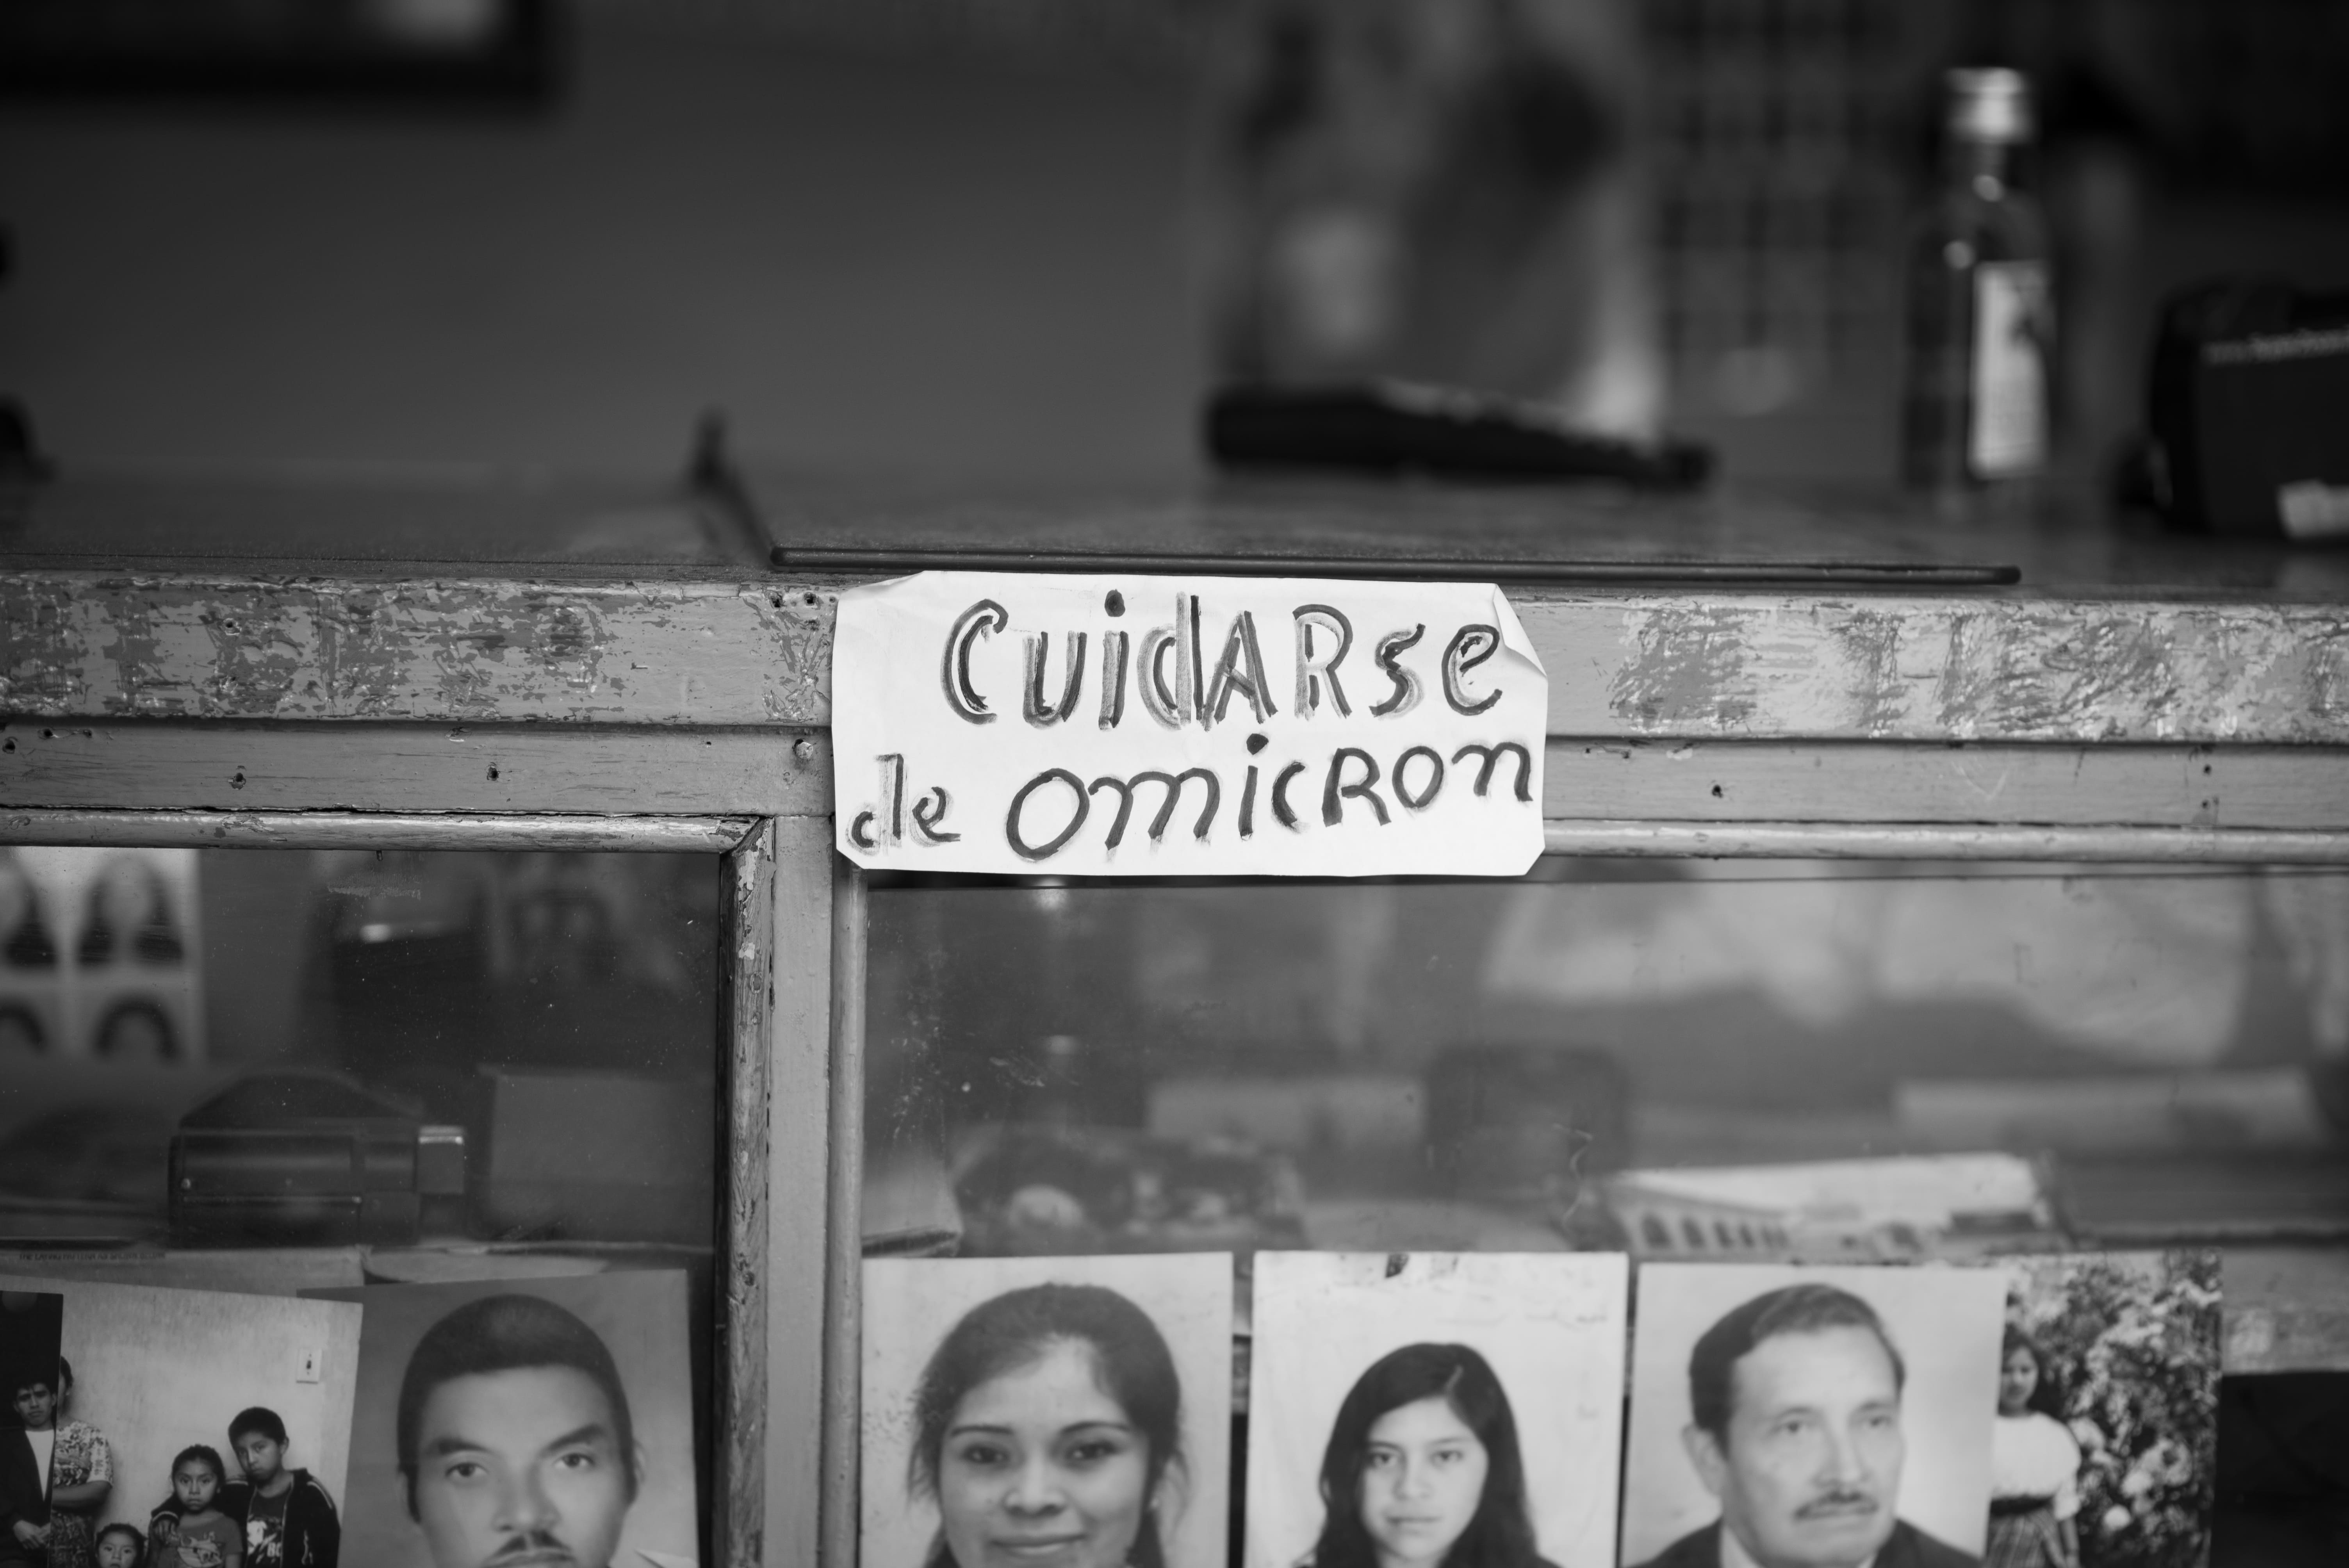 CuidARse
de omicRon